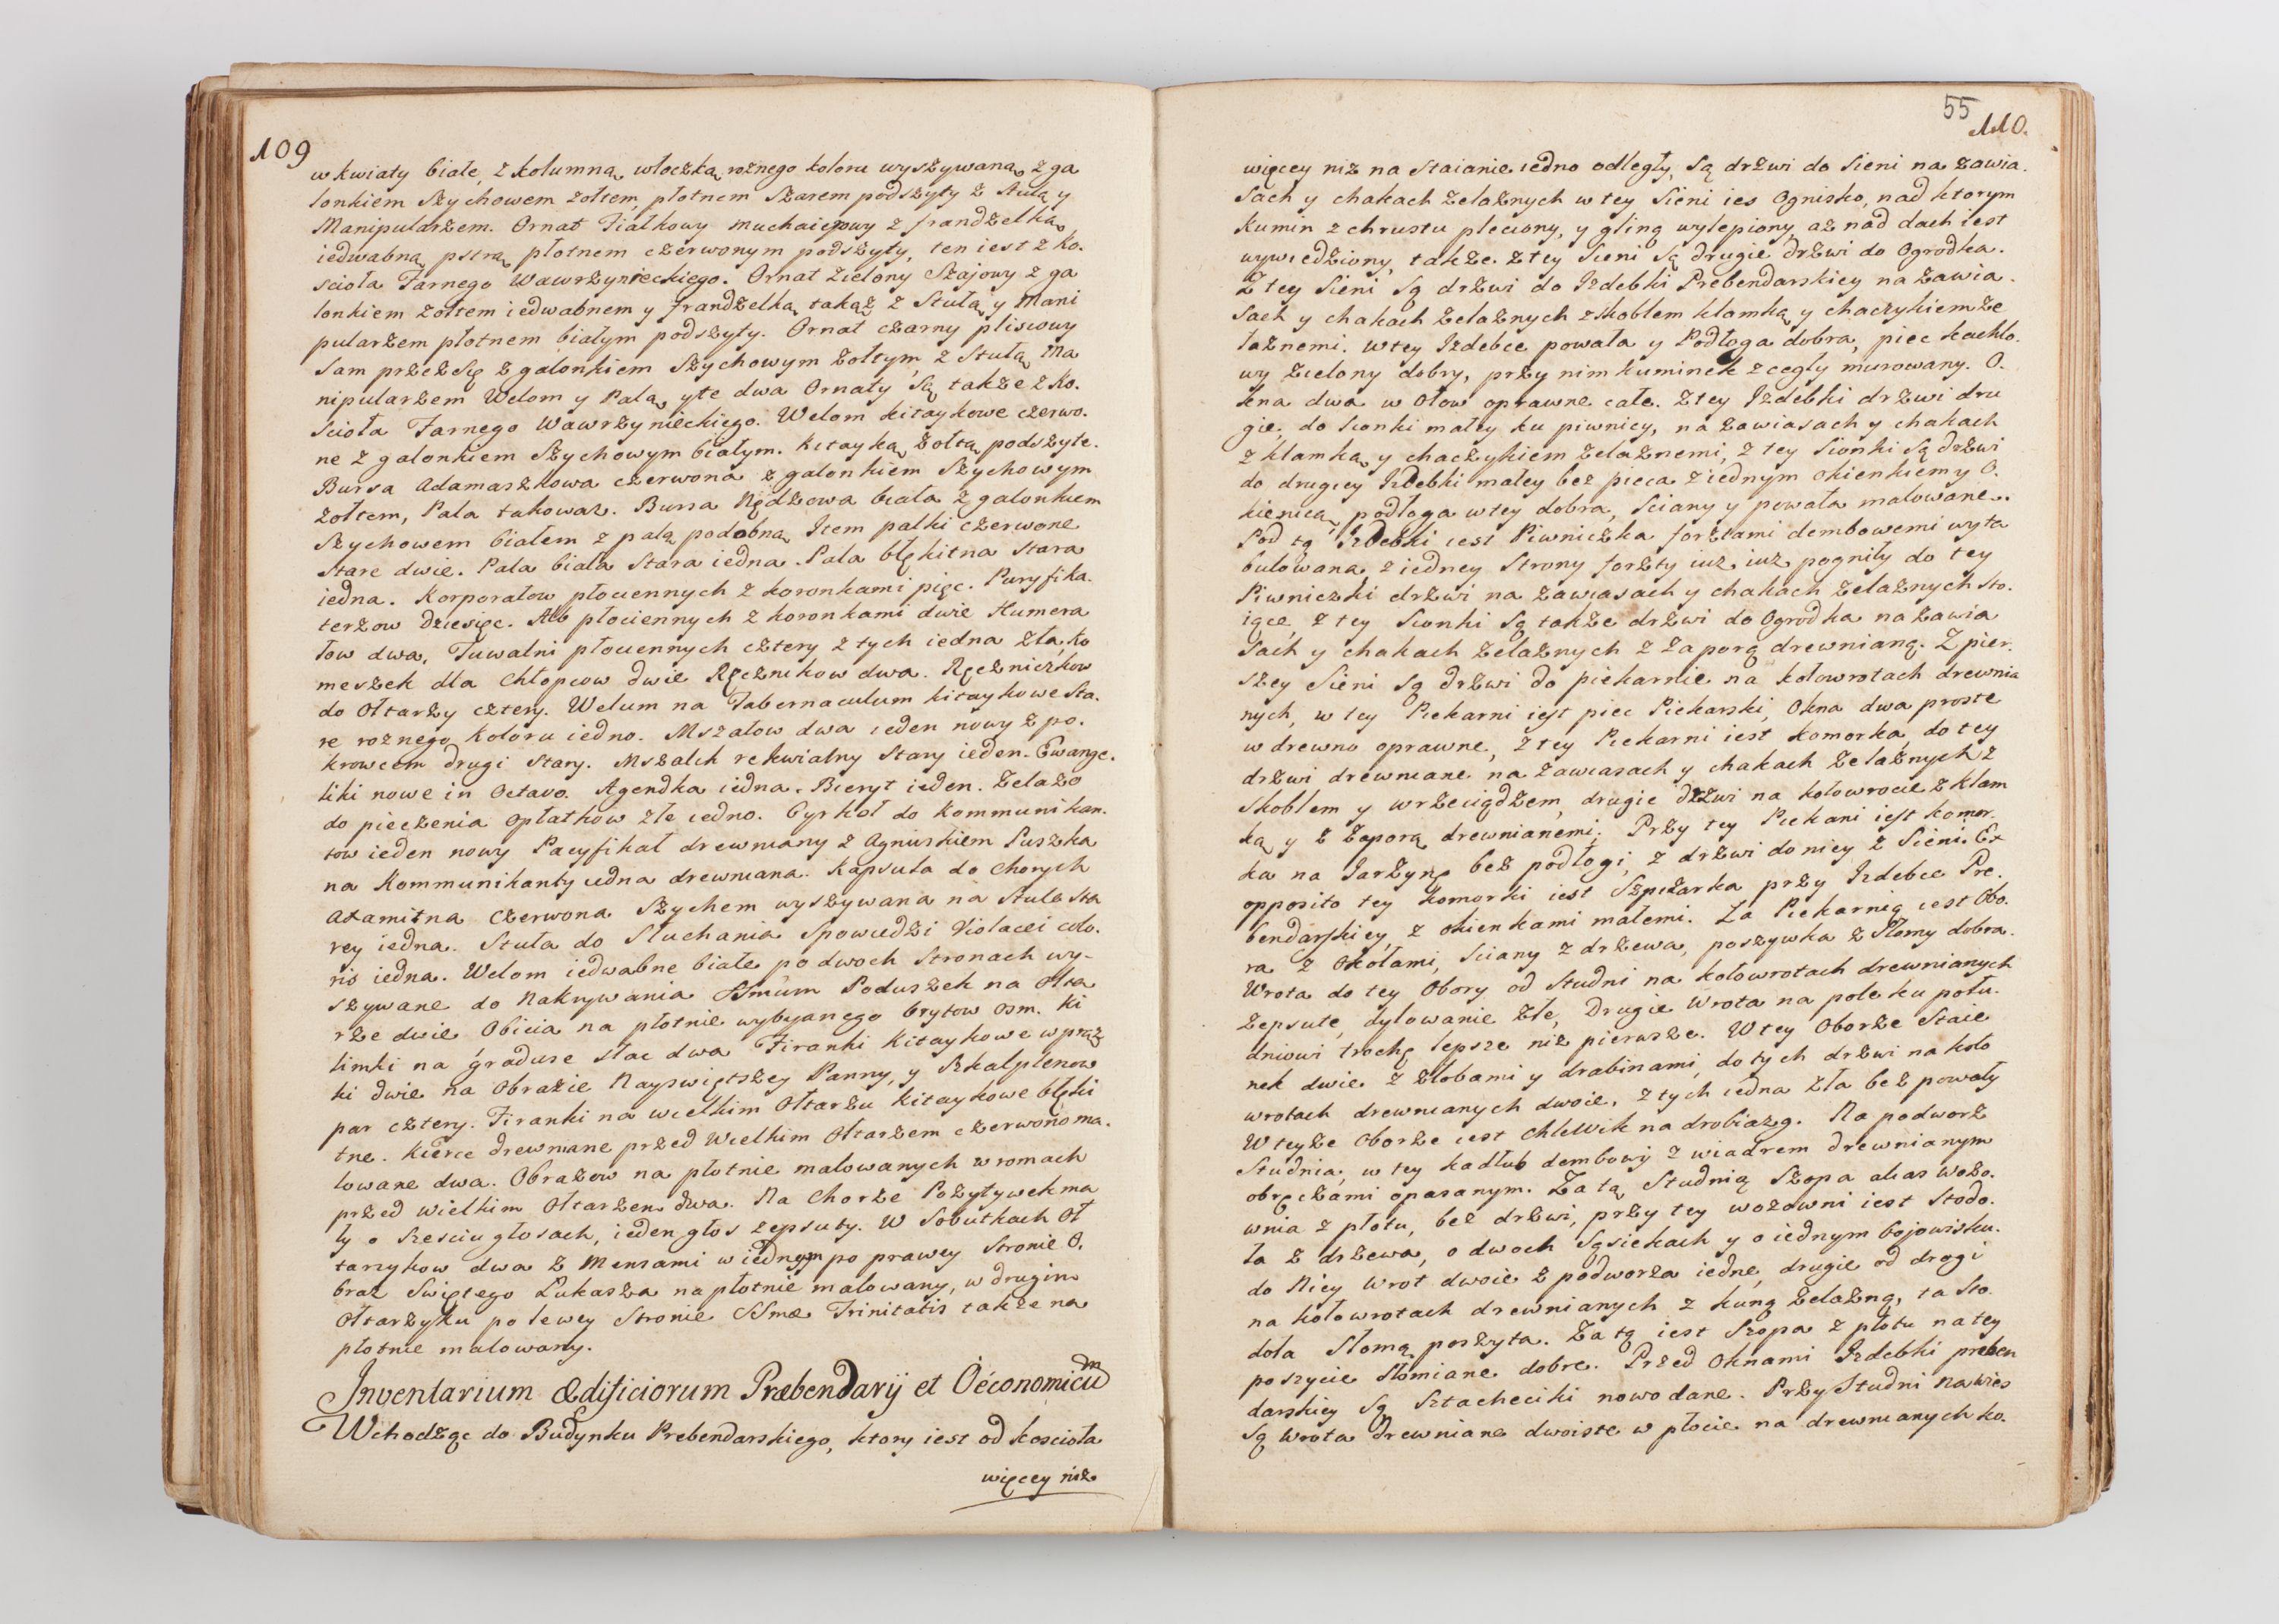 109
w kwiaty białe, z kolumną włoczką roznego koloru wyszywaną z ga
lonkiem Szychowem żołtem, płotnem Szarem podszyty z Stułą y
Manipularzem. Ornat Fiałkowy muchaierowy z frandzelką
iedwabną pstrą płotnem czerwonym podszyty, ten iest z Ko.
scioła Farnego Wawrzynieckiego. Ornat Zielony Szajowy z ga
lonkiem żołtem iedwabnem y frandzelką takąż z Stułą y Mani
pularzem płotnem białym podszyty. Ornat czarny plisowy
Sam przez Się z galonkiem Szychowym żołtym, z Stułą Ma
nipularzem Welom y Palą, yte dwa Ornaty Są także z Ko.
scioła Farnego Wawrzynieckiego. Welom kitaykowe czerwo.
ne z galonkiem Szychowym białym. Kitayką żołtą podszyte.
Bursa Adamaszkowa czerwona z galonkiem Szychowym
żołtem, Pala takowaz. Bursa Rędzowa biała z galonkiem
Szychowem białem z palą podobną Item palki czerwone
Stare dwie. Pala biała Stara iedna. Pala błękitna Stara
iedna. Korporałow płociennych z koronkami pięc. Puryfika.
terzow Dziesięc. Alb płociennych z koronkami dwie Humera
łow dwa, Tuwalni płociennych cztery z tych iedna zła, Ko
meszek dla Chłopcow dwie Ręcznikow dwa. Ręczniczkow
do Ołtarzy cztery. Welum na Tabernaculum kitaykowe Sta.
re roznego koloru iedno. Mszałow dwa ieden nowy z po.
krowcem drugi Stary. Mszalik rekwialny Stary ieden. Ewange.
liki nowe in Octavo. Agendka iedna. Bieryt ieden. Zelazo
do pieczenia opłatkow złe iedno. Cyrkoł do Kommunikan.
tow ieden nowy Pacyfikał drewniany z Agnuskiem Puszka
na Kommunikanty iedna drewniana. Kapsuła do Chorych
Axamitna Czerwona Szychem wyszywana na Stule Sta
rey iedna. Stuła do Słuchania Spowiedzi Violacei colo.
ris iedna. Welom iedwabne białe po dwoch Stronach wy-
szywane do Nakrywania SSmum Poduszek na Ołta
rze dwie Obicia na płotnie wybyanego brytow osm. Ki
limki na graduse Slac dwa Firanki Kitaykowe w prąż
ki dwie na Obrazie Nayswiętszey Panny, y Szkalplerzow
par cztery. Firanki na wielkim Ołtarzu kitaykowe błęki
tne. Kierce drewniane przed Wielkim Ołtarzem czerwono ma.
lowane dwa. Obrazow na płotnie malowanych w romach
przed wielkim Ołtarzem dwa. Na Chorze Pozytywek ma
ły o Szesciu głosach, ieden głos zepsuty. W Sobutkach Oł
tarzykow dwa z Mensami w iednym po prawey Stronie O.
braz Swiętego Łukasza na płotnie malowany, w drugim
Ołtarzyku po lewey Stronie SSmæ Trinitatis także na
płotnie malowany.
Inventarium Ædificiorum Præbendarij et Oéconomicum
Wchodząc do Budynku Prebendarskiego, ktory iest od koscioła
więcey niż
55
110.
więcey niz na Staianie iedno odległy, Są drzwi do Sieni na zawia.
Sach y chakach zelaznych w tey Sieni ies Ognisko, nad ktorym
Kumin z chrustu pleciony, y gliną wylepiony, aż nad dach iest
wywiedziony, także z tey Sieni Są drugie drzwi do Ogrodka.
Z tey Sieni Są drzwi do Izdebki Prebendarskiey na zawia.
Sach y chakach zelaznych z Skoblem klamką y chaczykiem że
laznemi. w tey Izdebce powała y Podłoga dobra, piec kachlo.
wy Zielony dobry, przy nim kuminek z cegły murowany. O.
kna dwa w ołow oprawne całe. Z tey Izdebki drzwi dru
gie, do Sionki małey ku piwnicy, na zawiasach y chakach
z klamką y chaczykiem zelaznemi, z tey Sionki Są drzwi
do drugiey Izdebki małey bez pieca z iednym okienkiem y O.
kienicą, podłoga w tey dobra, Sciany y powała malowane.
Pod tą Izdebki iest Piwniczka forztami dembowemi wyta
bulowana, z iedney Strony forzty iuz, iuz pogniły do tey
Piwniczki drzwi na zawiasach y chakach zelaznych Sto.
iące, z tey Sionki Są także drzwi do Ogrodka na zawia
Sach y chakach zelaznych z zaporą drewnianą. Z pier.
szey Sieni Są drzwi do piekarnie na kołowrotach drewnia
nych, w tey Piekarni iest piec Piekarski, Okna dwa proste
w drewno oprawne, z tey Piekarni iest komorka, do tey
drzwi drewniane na zawiasach y chakach zelaznych z
Skoblem y wrzeciądzem, drugie drzwi na kołowrocie z klam
ką y z zaporą drewnianemi. Przy tey Piekani iest komor.
ka na Jarzynę bez podłogi, z drzwi do niey z Sieni. Ex
opposito tey komorki iest Szpizarka przy Izdebce Pre.
bendarskiey z okienkami małemi. Za Piekarnią iest Obo.
ra z okołami, Sciany z drzewa, poszywka z Słomy dobra.
Wrota do tey Obory od Studni na kołowrotach drewnianych
zepsute, dylowanie złe, Drugie Wrota na pole ku połu.
dniowi trochę lepsze niz pierwsze. W tey Oborze Staie
nek dwie z złobami y drabinami, do tych drzwi na koło
wrotach drewnianych dwoie, z tych iedna zła bez powały
W teyże Oborze iest Chlewik na drobiazg. Na podworz
Studnia, w tey kadłub dembowy z wiadrem drewnianym
obręczami opasanym. Za tą Studnią Szopa alias wozo.
wnia z płotu, bez drzwi, przy tey wozowni iest Stodo.
ła z drzewa, o dwoch Sąsiekach y o iednym bojowisku.
do Niey Wrot dwoie z podworza iedne, drugie od drogi
na kołowrotach drewnianych z kuną zelazną, ta Sto.
doła Słomą poszyta. Za tą iest Szopa z płotu na tey
poszycie Słomiane dobre. Przed Oknami Izdebki preben
darskiey Są Sztacheciki nowo dane. Przy Studni na wies
Są Wrota drewniane dwoiste w płocie na drewnianych ko.